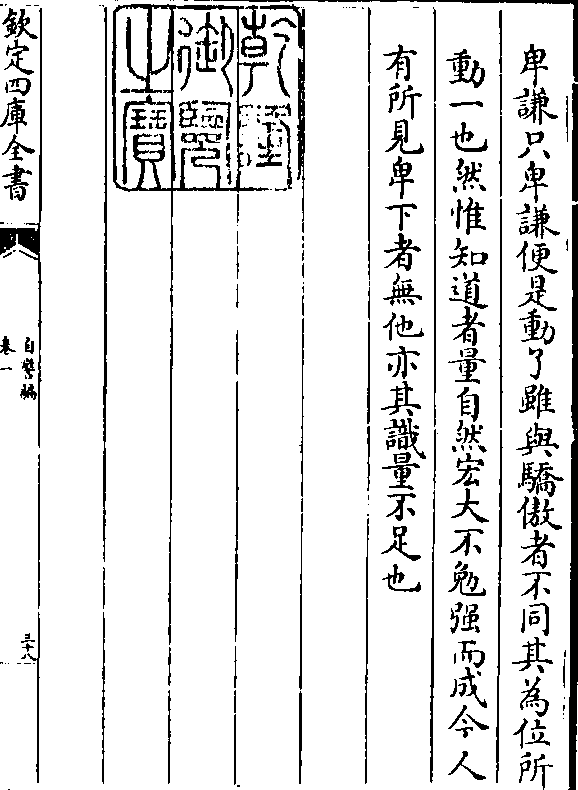 卑謙只卑謙便是動了雖與驕傲者不同其為位所
動一也然惟知道者量自然宏大不勉强而成今人
有所見卑下者無他亦其識量不足也
乾隆
御覽
之寶
欽定四庫全書
自警編
卷一
三十八